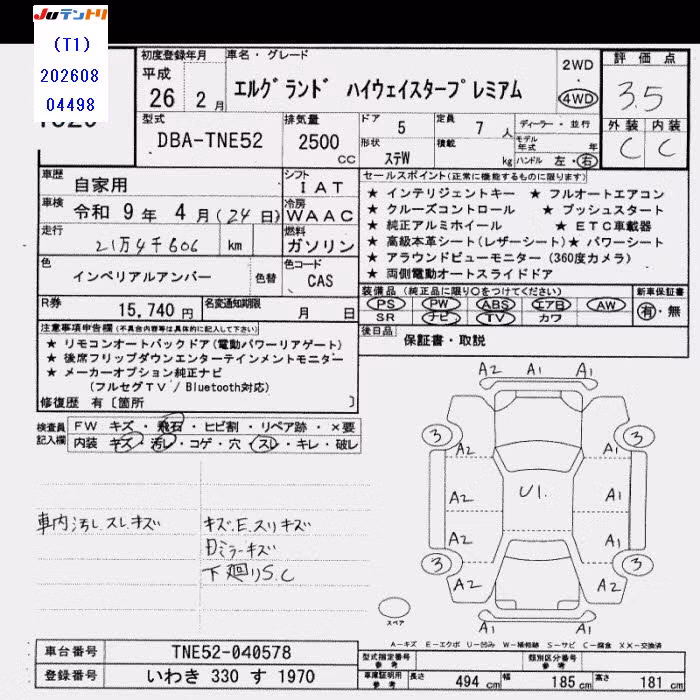 JUテントリ
(T1)
202608
04498
初度登録年月
平成
26 2 月
車名・グレード
エルグランド ハイウェイスタープレミアム
2WD
4WD
評価点
3.5
外装 内装
C C
型式
DBA-TNE52
排気量
2500
CC
ドア 5
形状 ステW
定員 7 人
積載 kg
ディーラー・並行
モデル年式 年
ハンドル 左・右
車歴
自家用
シフト
IAT
車検
令和 9 年 4 月 (24日)
冷房
WAAC
走行
21万4千606 km
燃料
ガソリン
色
インペリアルアンバー
色替
色コード
CAS
R券
15,740 円
名変通知期限
月 日
セールスポイント(正常に機能するものに限ります)
★ インテリジェントキー ★ フルオートエアコン
★ クルーズコントロール ★ プッシュスタート
★ 純正アルミホイール ★ ETC車載器
★ 高級本革シート(レザーシート) ★ パワーシート
★ アラウンドビューモニター (360度カメラ)
★ 両側電動オートスライドドア
装備品 (純正品に限り○をつけてください)
PS PW ABS エアB AW
SR ナビ TV カワ
新車保証書
有・無
後日品
保証書・取説
注意事項申告欄(不具合内容等は具体的に記入して下さい)
★ リモコンオートバックドア(電動パワーリアゲート)
★ 後席フリップダウンエンターテインメントモニター
★ メーカーオプション純正ナビ
(フルセグTV / Bluetooth対応)
修復歴 有〔箇所 〕
検査員
記入欄
FW キズ・飛石・ヒビ割・リペア跡・×要
内装 キズ・汚レ・コゲ・穴・スレ・キレ・破レ
車内汚レ.スレ.キズ
キズ.E.スリキズ
ミラーキズ
下廻りS.C
A2 A1 A1
3 3
A2 A1
A2 U1. A1
A2 A1
3 3
A2 A2
A1
スペア
A-キズ E-エクボ U-凹み W-補修跡 S-サビ C-腐食 XX-交換済
車台番号
TNE52-040578
登録番号
いわき 330 す 1970
型式指定番号
参考
類別区分番号
参考
車庫証明用
参考
長さ 494 cm 幅 185 cm 高さ 181 cm